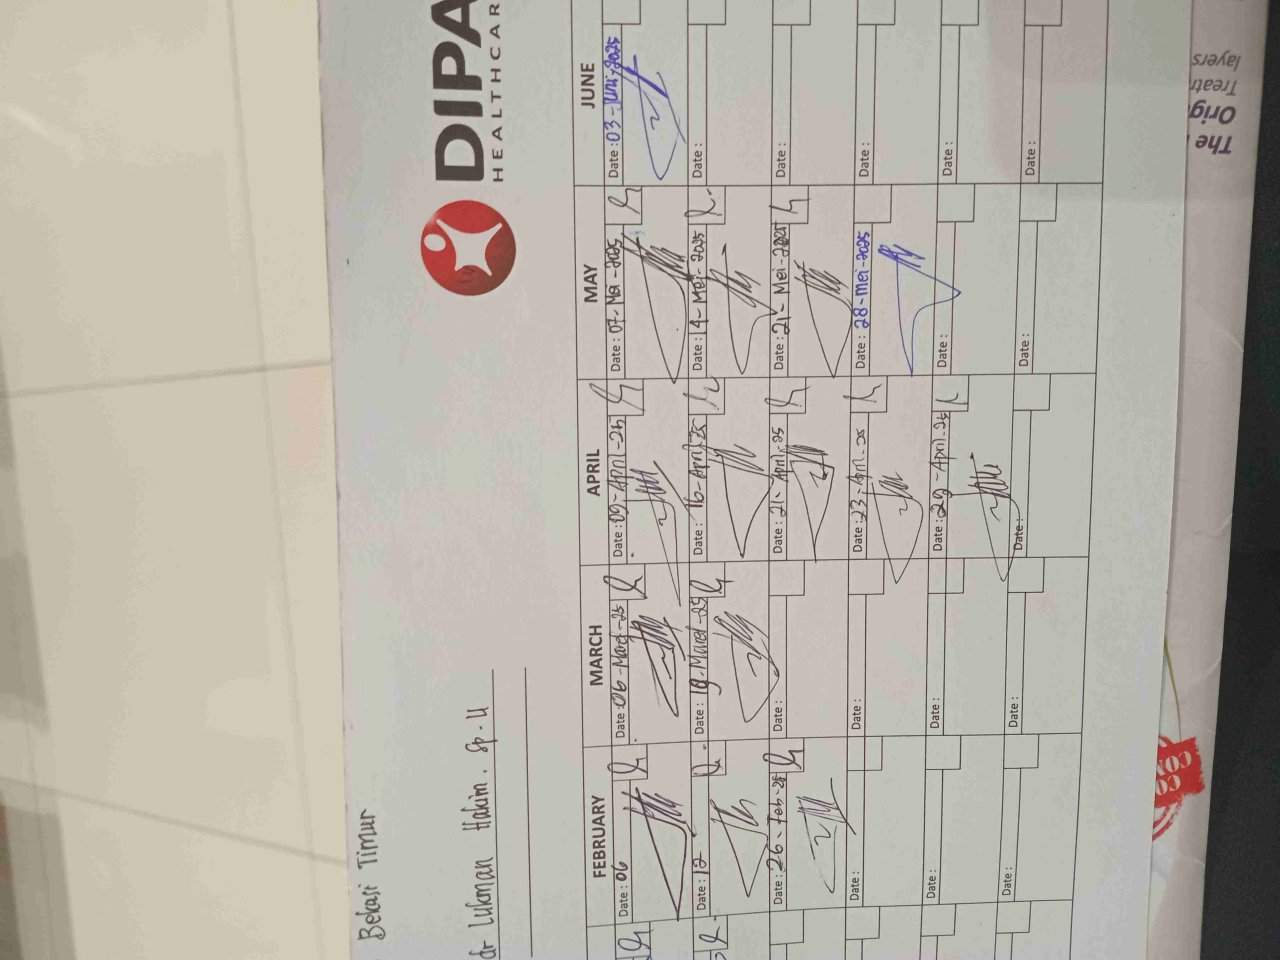 Bekasi Timur
dr Lukman Hakim . Sp . U
DIPA
HEALTHCAR
FEBRUARY MARCH APRIL MAY JUNE
Date : 06 Date : 06 - Maret - 25 Date : 09 - April - 25 Date : 07 - Mei - 2025 Date : 03 - Juni - 2025
Date : 12 Date : 19 - Maret - 25 Date : 16 - April - 25 Date : 14 - Mei - 2025 Date :
Date : 26 - Feb - 25 Date : Date : 21 - April - 25 Date : 21 - Mei - 2025 Date :
Date : Date : Date : 23 - April - 25 Date : 28 - mei - 2025 Date :
Date : Date : Date : 29 - April - 25 Date : Date :
Date : Date : Date : Date : Date :
The
Orig
Treatr
layers
CO
CON